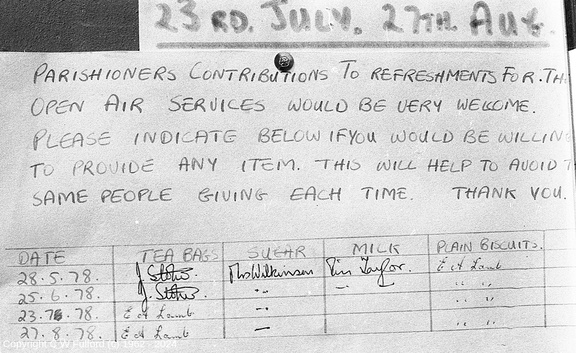 23RD. JULY. 27TH. AUG.
PARISHIONERS CONTRIBUTIONS TO REFRESHMENTS FOR. TH
OPEN AIR SERVICES WOULD BE VERY WELCOME.
PLEASE INDICATE BELOW IF YOU WOULD BE WILLIN
TO PROVIDE ANY ITEM. THIS WILL HELP TO AVOID T
SAME PEOPLE GIVING EACH TIME. THANK YOU.
DATE TEA BAGS SUGAR MILK PLAIN BISCUITS.
28.5.78. J. Stokes Mrs Wilkinson Tim Taylor. E A Lamb
25.6.78. J. Stokes " " — " "
23.7.78. E A Lamb — " "
27.8.78. E A Lamb — " "